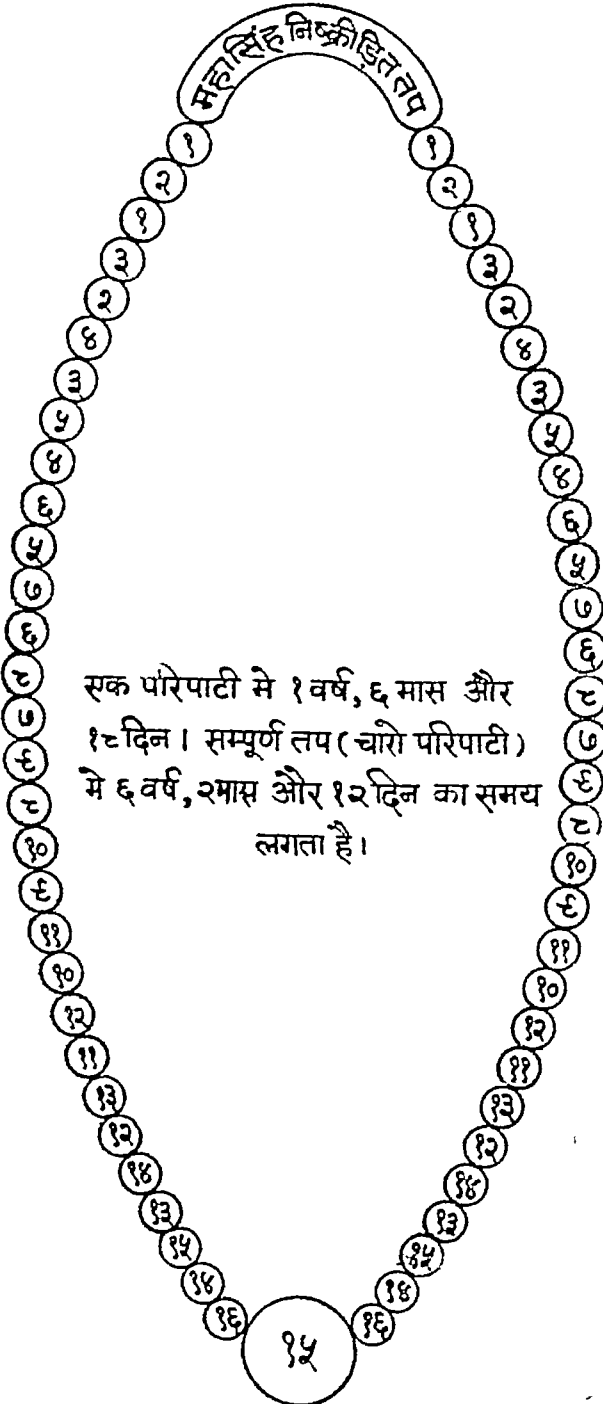 महासिंह निष्क्रीड़ित तप
१
२
१
३
२
४
३
५
४
६
५
७
६
८
७
९
८
१०
९
११
१०
१२
११
१३
१२
१४
१३
१५
१४
१६
१५
१
२
१
३
२
४
३
५
४
६
५
७
६
८
७
९
८
१०
९
११
१०
१२
११
१३
१२
१४
१३
१५
१४
१६
एक परिपाटी मे १ वर्ष, ६ मास और
१८ दिन । सम्पूर्ण तप (चारो परिपाटी)
मे ६ वर्ष, २मास और १२ दिन का समय
लगता है।